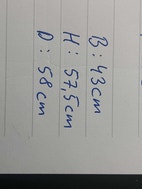 B: 43cm
H: 57,5cm
D: 58cm